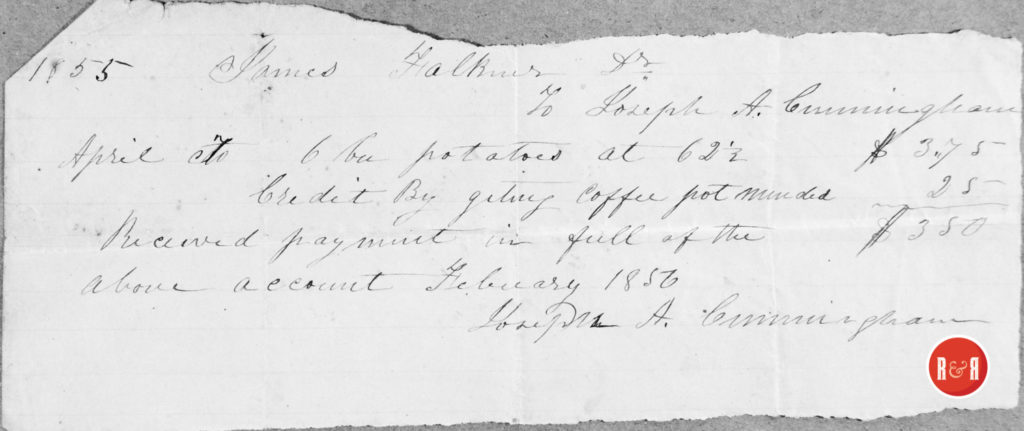 1855 James Falkner Dr
To Joseph A. Cunningham
April To 6 bu potatoes at 62½ $ 3.75
Credit By geting coffee pot mended 25
Received payment in full of the $ 350
above account February 1856
Joseph A. Cunningham
R&R